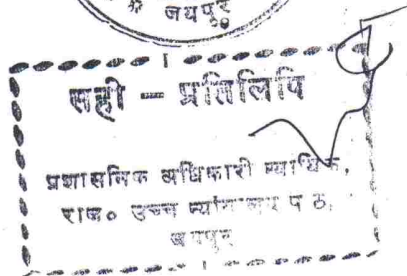 जयपुर
सही – प्रतिलिपि
प्रशासनिक अधिकारी न्यायिक,
राज० उच्च न्यायालय पीठ,
जयपुर